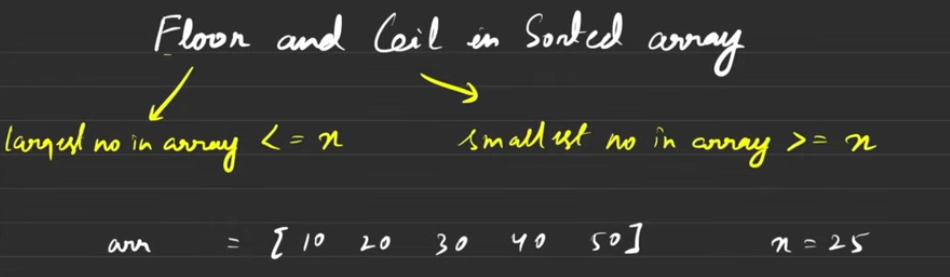 Floor and Ceil in Sorted array
largest no in array <= x smallest no in array >= x
arr = [ 10 20 30 40 50 ] x = 25